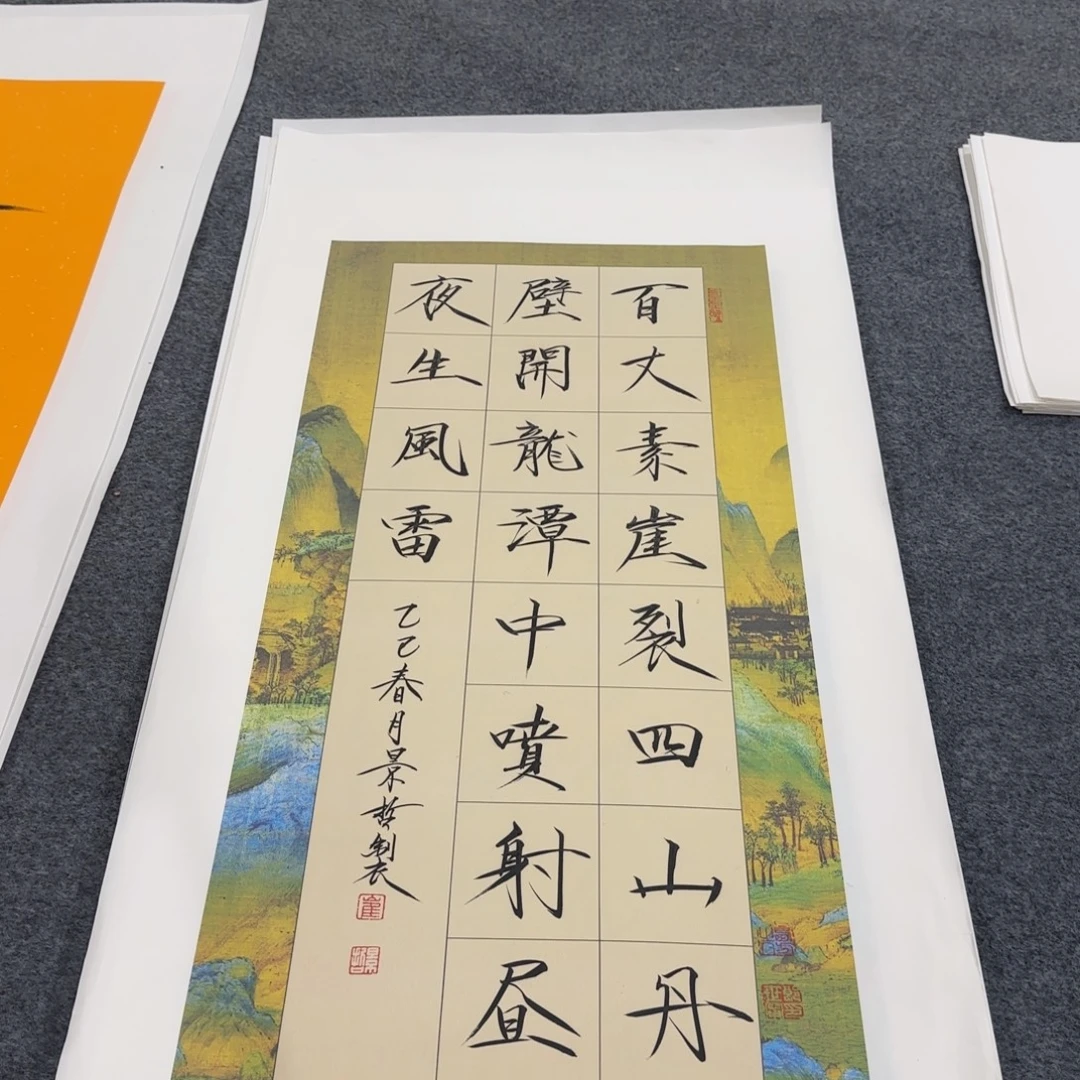 百丈素崖裂四山丹
壁開龍潭中噴射昼
夜生風雷
乙巳春月景哲製